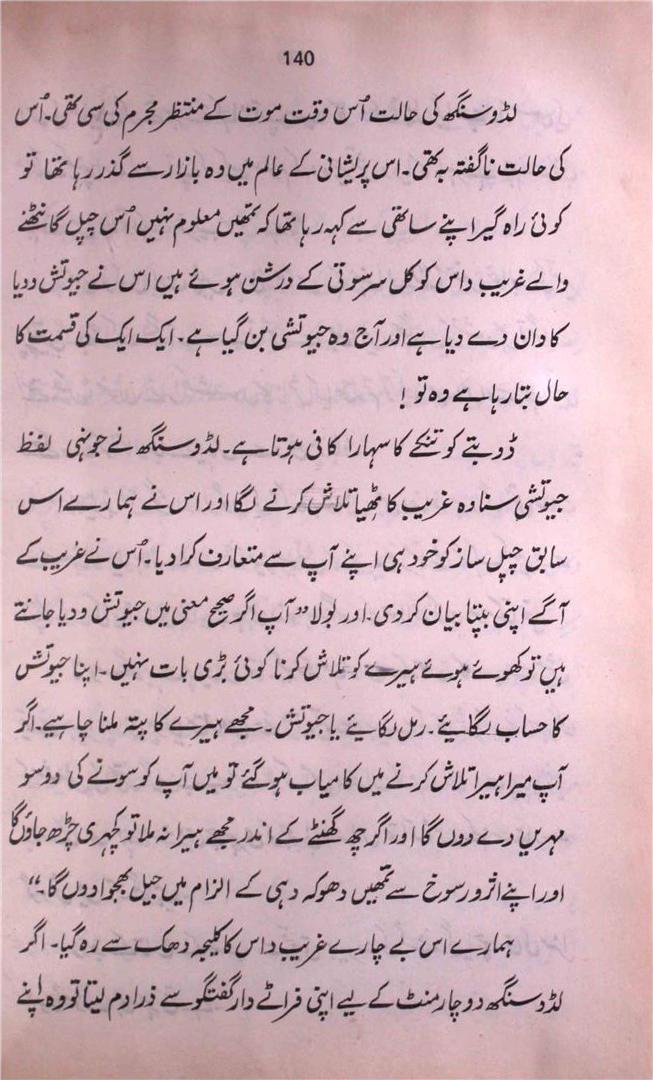 140
لڈو سنگھ کی حالت اُس وقت موت کے منتظر مجرم کی سی تھی۔ اُس
کی حالت ناگفتہ بہ تھی۔ اس پریشانی کے عالم میں وہ بازار سے گذر رہا تھا تو
کوئی راہ گیر اپنے ساتھی سے کہہ رہا تھا کہ تمھیں معلوم نہیں اُس چپل گانٹھنے
والے غریب داس کو کل سرسوتی کے درشن ہوئے ہیں اس نے جیوتش ودیا
کا دان دے دیا ہے اور آج وہ جیوتشی بن گیا ہے۔ ایک ایک کی قسمت کا
حال بتا رہا ہے وہ تو !
ڈوبتے کو تنکے کا سہارا کافی ہوتا ہے۔ لڈو سنگھ نے جونہی لفظ
جیوتشی سنا وہ غریب کا ٹھیا تلاش کرنے لگا اور اس نے ہمارے اس
سابق چپل ساز کو خود ہی اپنے آپ سے متعارف کرا دیا۔ اُس نے غریب کے
آگے اپنی بپتا بیان کر دی۔ اور بولا ”آپ اگر صحیح معنی میں جیوتش ودیا جانتے
ہیں تو کھوئے ہوئے ہیرے کو تلاش کرنا کوئی بڑی بات نہیں۔ اپنا جیوتش
کا حساب لگائیے۔ رمل لگائیے یا جیوتش۔ مجھے ہیرے کا پتہ ملنا چاہیے۔ اگر
آپ میرا ہیرا تلاش کرنے میں کامیاب ہوگئے تو میں آپ کو سونے کی دو سو
مہریں دے دوں گا اور اگر چھ گھنٹے کے اندر مجھے ہیرا نہ ملا تو کچہری چڑھ جاؤں گا
اور اپنے اثر و رسوخ سے تمھیں دھوکہ دہی کے الزام میں جیل بھجوا دوں گا۔“
ہمارے اس بے چارے غریب داس کا کلیجہ دھک سے رہ گیا۔ اگر
لڈو سنگھ دو چار منٹ کے لیے اپنی فراٹے دار گفتگو سے ذرا دم لیتا تو وہ اپنے